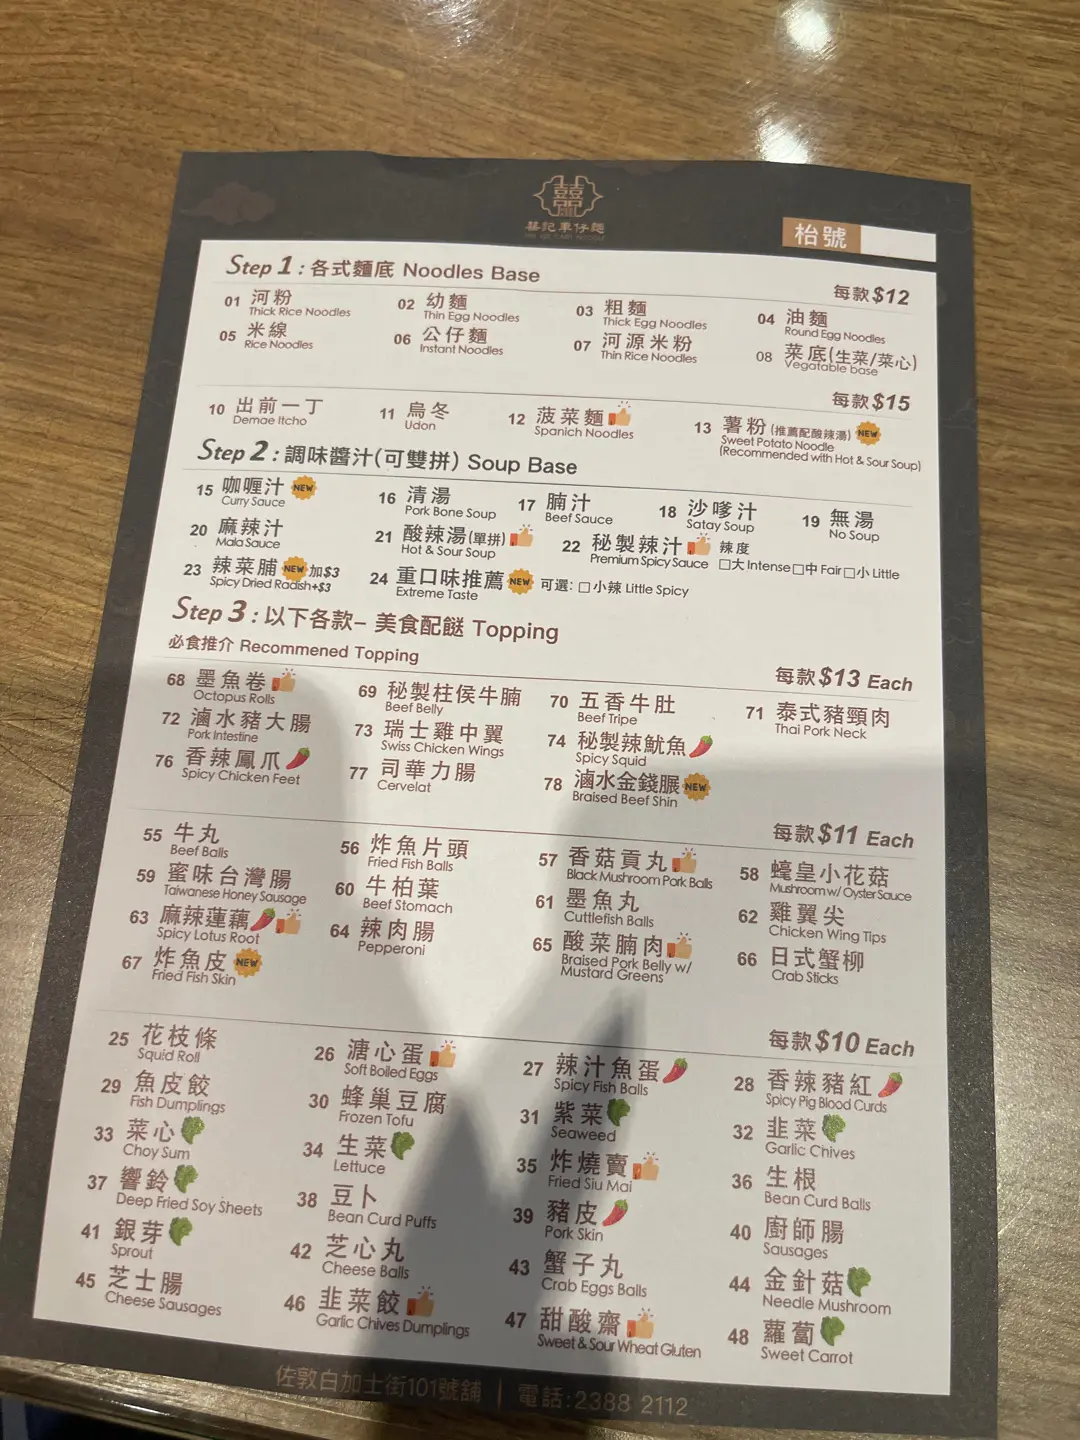 囍記車仔麵
枱號
Step 1 : 各式麵底 Noodles Base
每款$12
01 河粉 Thick Rice Noodles
02 幼麵 Thin Egg Noodles
03 粗麵 Thick Egg Noodles
04 油麵 Round Egg Noodles
05 米線 Rice Noodles
06 公仔麵 Instant Noodles
07 河源米粉 Thin Rice Noodles
08 菜底(生菜/菜心) Vegatable base
每款$15
10 出前一丁 Demae Itcho
11 烏冬 Udon
12 菠菜麵 Spanich Noodles
13 薯粉 (推薦配酸辣湯) NEW Sweet Potato Noodle
(Recommended with Hot & Sour Soup)
Step 2 : 調味醬汁(可雙拼) Soup Base
15 咖喱汁 NEW Curry Sauce
16 清湯 Pork Bone Soup
17 腩汁 Beef Sauce
18 沙嗲汁 Satay Soup
19 無湯 No Soup
20 麻辣汁 Mala Sauce
21 酸辣湯(單拼) Hot & Sour Soup
22 秘製辣汁 Premium Spicy Sauce 辣度 □大 Intense □中 Fair □小 Little
23 辣菜脯 NEW 加$3 Spicy Dried Radish+$3
24 重口味推薦 NEW Extreme Taste 可選: □ 小辣 Little Spicy
Step 3 : 以下各款– 美食配餸 Topping
必食推介 Recommened Topping
每款$13 Each
68 墨魚卷 Octopus Rolls
69 秘製柱侯牛腩 Beef Belly
70 五香牛肚 Beef Tripe
71 泰式豬頸肉 Thai Pork Neck
72 滷水豬大腸 Pork Intestine
73 瑞士雞中翼 Swiss Chicken Wings
74 秘製辣魷魚 Spicy Squid
76 香辣鳳爪 Spicy Chicken Feet
77 司華力腸 Cervelat
78 滷水金錢𦟌 NEW Braised Beef Shin
每款$11 Each
55 牛丸 Beef Balls
56 炸魚片頭 Fried Fish Balls
57 香菇貢丸 Black Mushroom Pork Balls
58 蠔皇小花菇 Mushroom w/ Oyster Sauce
59 蜜味台灣腸 Taiwanese Honey Sausage
60 牛柏葉 Beef Stomach
61 墨魚丸 Cuttlefish Balls
62 雞翼尖 Chicken Wing Tips
63 麻辣蓮藕 Spicy Lotus Root
64 辣肉腸 Pepperoni
65 酸菜腩肉 Braised Pork Belly w/
Mustard Greens
66 日式蟹柳 Crab Sticks
67 炸魚皮 NEW Fried Fish Skin
每款$10 Each
25 花枝條 Squid Roll
26 溏心蛋 Soft Boiled Eggs
27 辣汁魚蛋 Spicy Fish Balls
28 香辣豬紅 Spicy Pig Blood Curds
29 魚皮餃 Fish Dumplings
30 蜂巢豆腐 Frozen Tofu
31 紫菜 Seaweed
32 韭菜 Garlic Chives
33 菜心 Choy Sum
34 生菜 Lettuce
35 炸燒賣 Fried Siu Mai
36 生根 Bean Curd Balls
37 響鈴 Deep Fried Soy Sheets
38 豆卜 Bean Curd Puffs
39 豬皮 Pork Skin
40 廚師腸 Sausages
41 銀芽 Sprout
42 芝心丸 Cheese Balls
43 蟹子丸 Crab Eggs Balls
44 金針菇 Needle Mushroom
45 芝士腸 Cheese Sausages
46 韭菜餃 Garlic Chives Dumplings
47 甜酸齋 Sweet & Sour Wheat Gluten
48 蘿蔔 Sweet Carrot
佐敦白加士街101號舖 | 電話:2388 2112